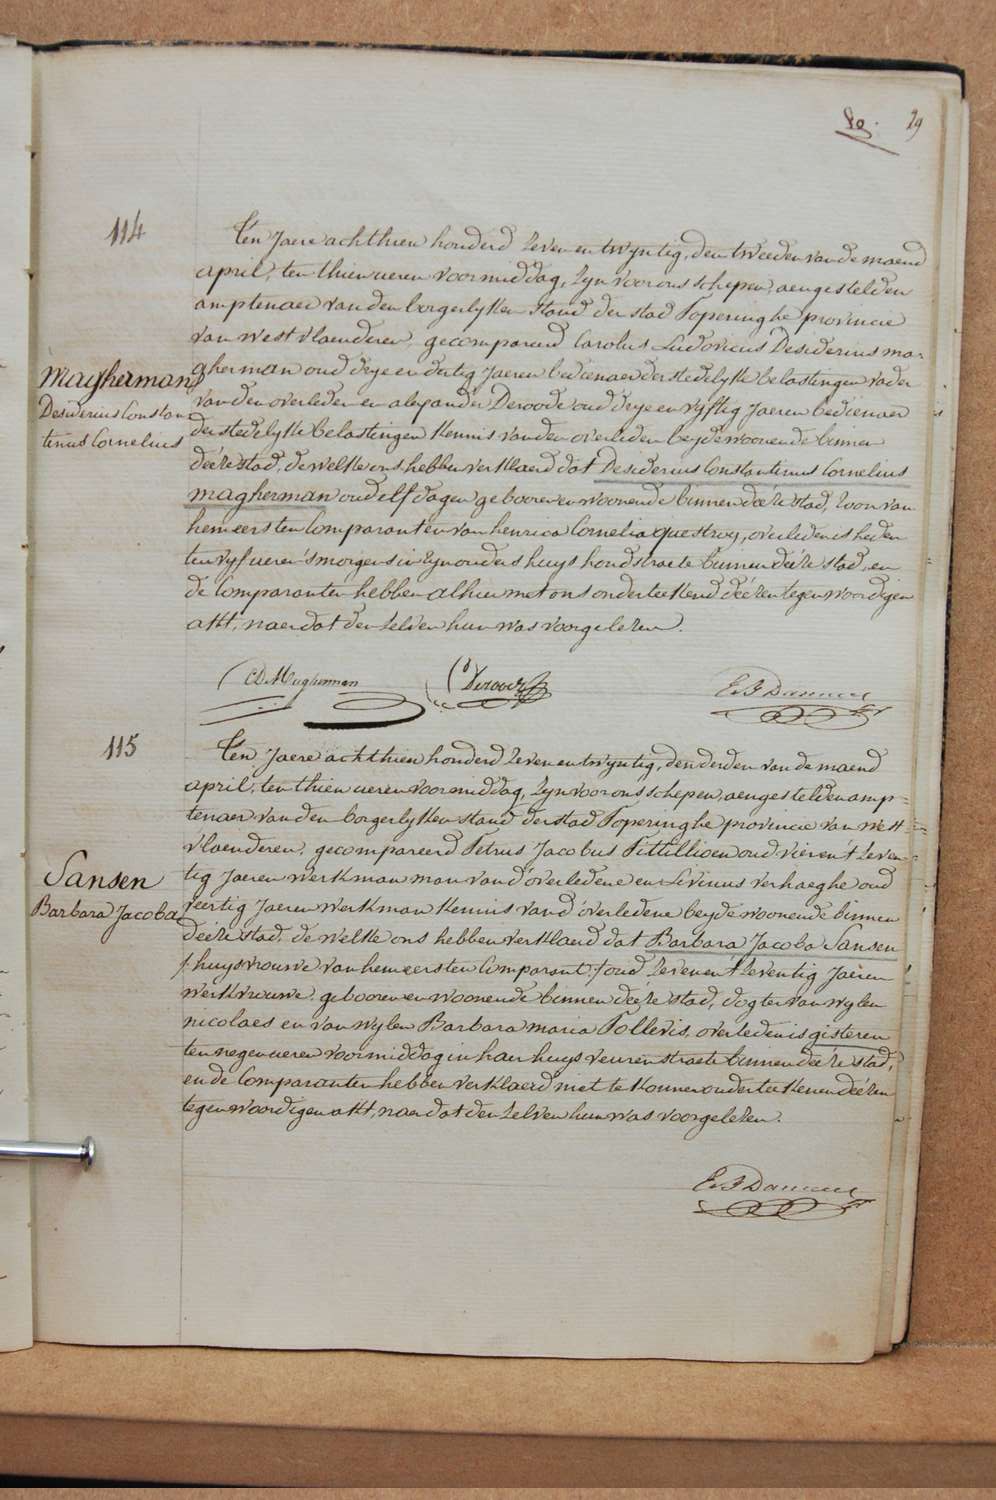 29
114
Ten Jaere achthien honderd zeven en twyntig, den tweeden van de maend
april, ten thien ueren voormiddag, zyn voor ons schepen, aengestelden
amptenaer van den borgerlyken stand der stad Poperinghe provincie
van West Vlaenderen, gecompareerd Carolus Ludovicus Desiderius Ma-
gherman oud dryeendertig Jaeren bedienaer der stedelyke belastingen vader
van den overledenen alexander Deroode oud dryeenvyftig Jaeren bedienaer
der stedelyke belastingen kennis van den overleden beyde woonende binnen
deéze stad, de welke ons hebben verklaerd dat Desiderius Constantinus Cornelius
magherman oud elf dagen geboren en woonende binnen deéze stad, zoon van
hem eersten Comparant en van henrica Cornelia questroy, overleden is heden
ten vyf ueren 's morgens in zyn ouders huys hondstraete binnen deéze stad, en
de Comparanten hebben alhier met ons onderteekend deézen tegenwoordigen
akt, naer dat den zelven hun was voorgelezen.
Magherman
Desiderius Constan
tinus Cornelius
CD Magherman
Deroode
115
Ten Jaere achthien honderd zeven en twyntig, den derden van de maend
april, ten thien ueren voormiddag, zyn voor ons schepen, aengestelden amp=
tenaer van den borgerlyken stand der stad Poperinghe provincie van West
Vlaenderen, gecompareerd Petrus Jacobus Pittillioen oud vieren't zeven-
tig Jaeren werkman man van d'overledene en Livinus verhaeghe oud
veertig Jaeren werkman kennis van d'overledene beyde woonende binnen
deéze stad, de welke ons hebben verklaerd dat Barbara Jacoba Sansen
/:huysvrouwe van hem eersten Comparant:/ oud zeven en t'zeventig Jaeren
werkvrouwe, geboren en woonende binnen deéze stad, dogter van wylen
nicolaes en van wylen Barbara maria Tollevis, overleden is gisteren
ten negen ueren voormiddag in haer huys veurenstraete binnen deéze stad,
en de Comparanten hebben verklaerd niet te konnen onderteekenen deézen
tegenwoordigen akt, naer dat den zelven hun was voorgelezen.
Sansen
Barbara Jacoba